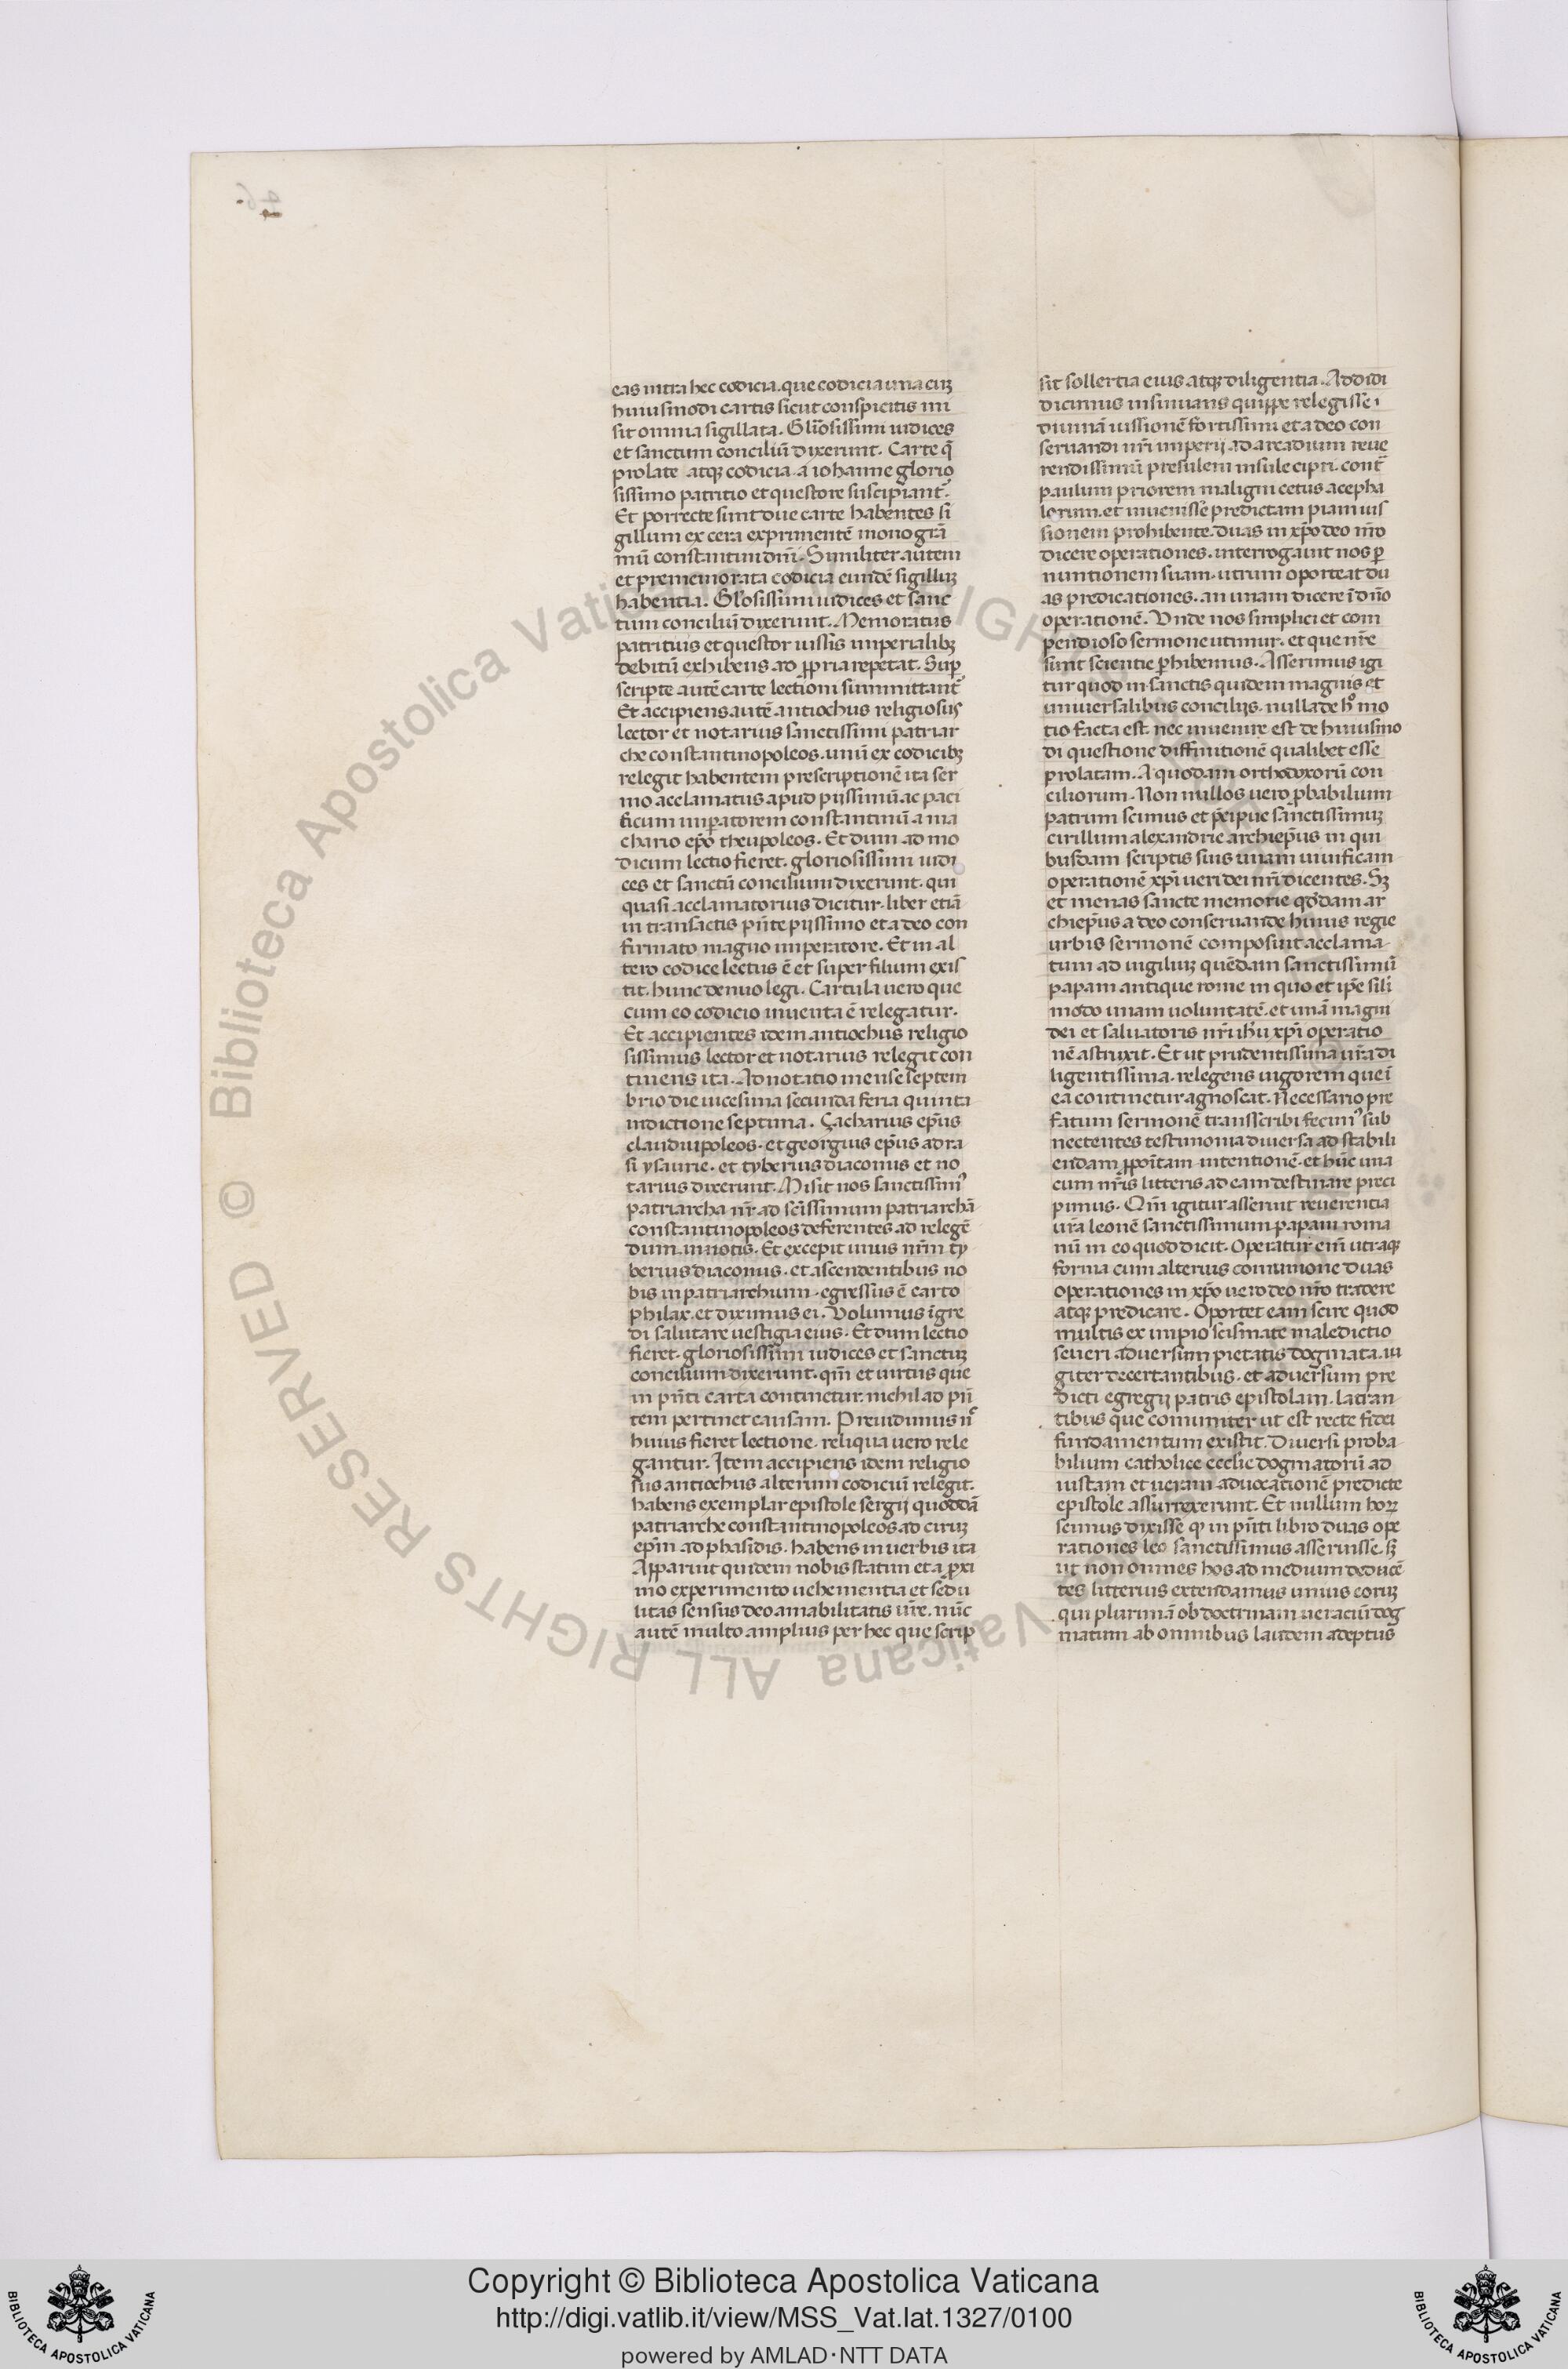 eas intra hec codicia. que codicia una cuꝫ
huiusmodi cartis sicut conspicitis mi
sit omnia sigillata. Głiosissimi iudices
et sanctum conciliū dixerunt. Carte q̄
prolate atqꝫ codicia a iohanne glorio
sissimo patritio et questore suscipiant᷑.
Et porrecte sunt due carte habentes si
gillum ex cera exprimentē monogrā
mū constantini dn̄i. Similiter autem
et prememorata codicia eundē sigilluꝫ
habentia. Głosissimi iudices et sanc
tum conciliū dixerunt. Memoratus
patritius et questor iussis imperialibꝫ
debitū exhibens ad ꝓpria repetat. Suꝑ
scripte autē carte lectioni summittant᷑
Et accipiens autē antiochus religiosus
lector et notarius sanctissimi patriar
che constantinopoleos. unū ex codicibꝫ
relegit habentem prescriptionē ita ser
mo acclamatus apud pijssimū ac paci
ficum imꝑatorem constantinū a ma
chario ep̄o theupoleos. Et dum ad mo
dicum lectio fieret. gloriosissimi iudi
ces et sanctū concilium dixerunt. qui
quasi acclamatorius dicitur. liber etiā
in transactis pn̄te pijssimo et a deo con
firmato magno imperatore. Et in al
tero codice lectus ē et super filium exis
tit. hunc denuo legi. Cartula uero que
cum eo codicio inuenta ē relegatur.
Et accipientes idem antiochus religio
sissimus lector et notarius relegit con
tinens ita. Adnotatio mense septem
brio die uicesima secunda feria quinta
indictione septima. Zacharius ep̄us
claudiupoleos. et georgius ep̄us adra
si ysaurie. et tyberius diaconus et no
tarius dixerunt. Misit nos sanctissim᷒
patriarcha nr̄ ad sc̄issimum patriarchā
constantinopoleos deferentes ad relegē
dum innotis. Et excepit unus nr̄m ty
berius diaconus. et ascendentibus no
bis in patriarchium. egressus ē carto
philax. et diximus ei. Volumus īgre
di salutare uestigia eius. Et dum lectio
fieret. gloriosissimi iudices et sanctuꝫ
concilium dixerunt. qm̄ et uirtus que
in pn̄ti carta continetur. nichil ad pn̄
tem pertinet causam. Preuidimus n̄
huius fieret lectione. reliqua uero rele
gantur. Item accipiens idem religio
sus antiochus alterum codiciū relegit.
habens exemplar epistole sergij quōdā
patriarche constantinopoleos ad ciruꝫ
ep̄m ad phasidis. habens in uerbis ita
Apparuit quidem nobis statim et a ꝓxi
mo experimento uehementia et sedu
litas sensus deo amabilitatis ur̄e. nūc
autē multo amplius per hec que scrip
sit sollertia eius atqꝫ diligentia. Addidi
dicimus insinuans quippe relegisse
diuinā iussionē fortissimi et a deo con
seruandi nr̄i imperij ad arcadium reue
rendissimū presulem insule cipri. cont̄
paulum priorem maligni cetus acepha
lorum. et inuenisse predictam piam ius
sionem prohibente. duas in xp̄o deo nr̄o
dicere operationes. interrogauit nos ꝑ
nuntionem suam. utrum oporteat du
as predicationes. an unam dicere ī dn̄o
operationē. Vnde nos simplici et com
pendioso sermone utimur. et que nr̄e
sunt scientie ꝑhibemus. Asserimus igi
tur quod in sanctis quidem magnis et
uniuersalibus concilijs. nulla de h° mo
tio facta est. nec inuenire est de huiusmo
di questione diffinitionē qualibet esse
prolatam. A quodam orthodoxorū con
ciliorum. Non nullos uero ꝓbabilium
patrum scimus et p̄cipue sanctissimuꝫ
cirillum alexandrie archiep̄us in qui
busdam scriptis suis unam uiuificam
operationē xp̄i ueri dei nr̄i dicentes. Sꝫ
et menas sancte memorie qōdam ar
chiep̄us a deo conseruande huius regie
urbis sermonē composuit acclama
tum ad uigiliuꝫ quēdam sanctissimū
papam antique rome in quo et ip̄e sili
modo unam uoluntatē. et unā magni
dei et saluatoris nr̄i ih̄u xp̄i operatio
nē astruxit. Et ut prudentissima ur̄a di
ligentissima. relegens uigorem que ī
ea continetur agnoscat. Necessario pre
fatum sermonē transscribi fecim᷒ sub
nectentes testimonia diuersa ad stabili
endam ꝓpoītam intentionē. et hūc una
cum nr̄is litteris ad eam destinare preci
pimus. Qm̄ igitur asseruit reuerentia
ur̄a leonē sanctissimum papam roma
nū in eo quod dicit. Operatur eni᷑ utraqꝫ
forma cum alterius comunione duas
operationes in xp̄o uero deo nr̄o tradere
atqꝫ predicare. Oportet eam scire quod
multis ex impio scismate maledictio
seueri aduersum pietatis dogmata. iu
giter decertantibus. et aduersum pre
dicti egregij patris epistolam. latran
tibus que comuniter ut est recte fidei
fundamentum existit. Diuersi proba
bilium catholice ecclīe dogmatorū ad
iustam et ueram aduocationē predicte
epistole assurrexerunt. Et nullum hoꝝ
scimus dixisse ꝙ in pn̄ti libro duas ope
rationes leo sanctissimus asseruisse. sꝫ
ut non omnes hos ad medium deducē
tes litterius extendamus unius coruꝫ
qui plurimā ob doctrinam ueraciū dog
matum ab omnibus laudem adeptus
© Biblioteca Apostolica Vaticana ALL RIGHTS RESERVED
Copyright © Biblioteca Apostolica Vaticana
http://digi.vatlib.it/view/MSS_Vat.lat.1327/0100
powered by AMLAD·NTT DATA
BIBLIOTECA APOSTOLICA VATICANA
BIBLIOTECA APOSTOLICA VATICANA